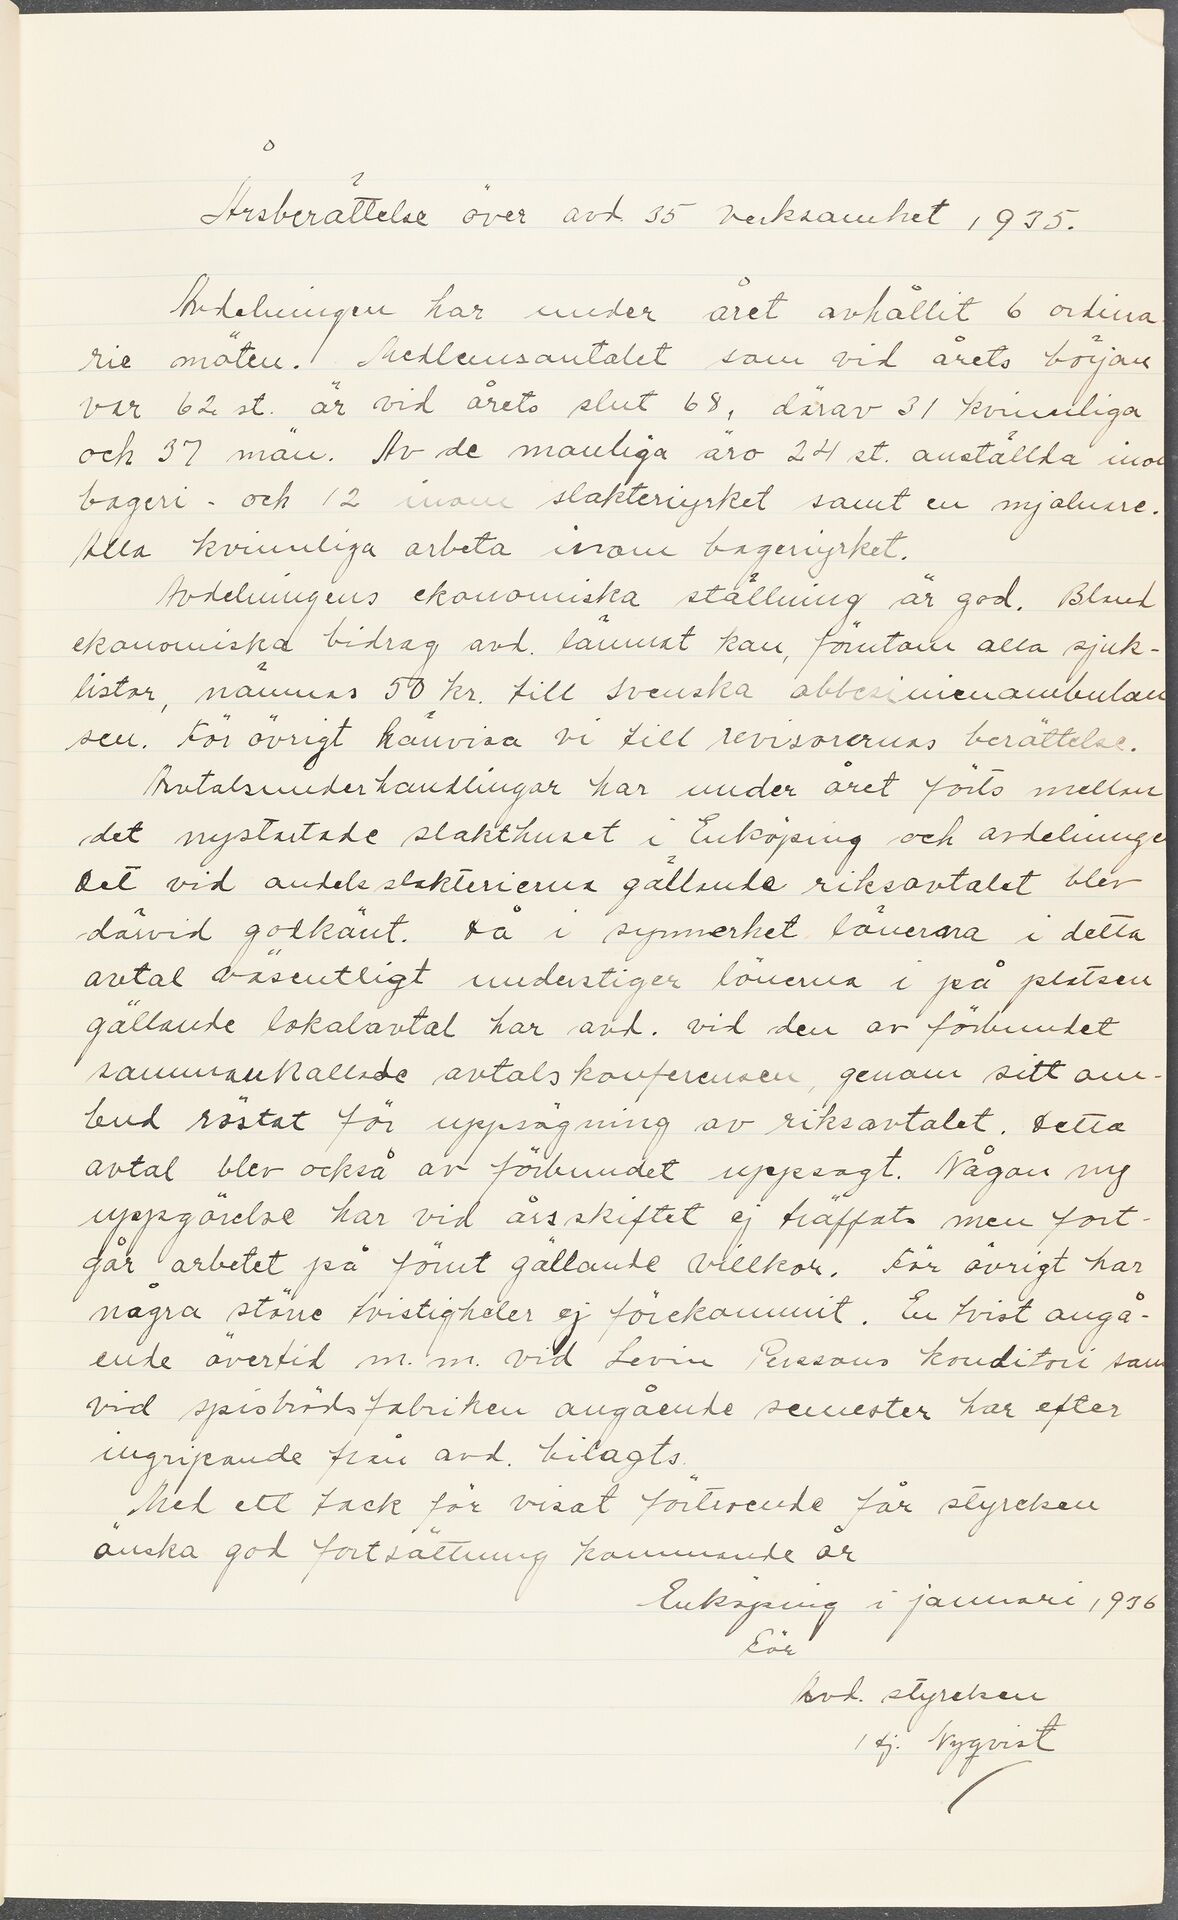 Årsberättelse över avd 35 verksamhet 1935.
Avdelningen har under året avhållit 6 ordina
rie möten. Medlemsantalet som vid årets början
var 62 st. är vid årets slut 68, därav 31 kvinnliga
och 37 män. Av de manliga äro 24 st. anställda inom
bageri- och 12 inom slakteriyrket samt en mjölnare.
Alla kvinnliga arbeta inom bageriyrket.
Avdelningens ekonomiska ställning är god. Bland
ekonomiska bidrag avd. lämnat kan, förutom alla sjuk-
listor, nämnas 50 kr. till Svenska abbesinienambulan
sen. För övrigt hänvisa vi till revisorernas berättelse.
Avtalsunderhandlingar har under året förts mellan
det nystartade slakthuset i Enköping och avdelninge
Det vid andelsslakterierna gällande riksavtalet blev
därvid godkänt. Då i synnerhet lönerna i detta
avtal väsentligt understiger lönerna i på platsen
gällande lokalavtal har avd. vid den av förbundet
sammankallade avtalskonferensen, genom sitt om-
bud röstat för uppsägning av riksavtalet. Detta
avtal blev också av förbundet uppsagt. Någon ny
uppgörelse har vid årsskiftet ej träffats men fort-
går arbetet på förut gällande villkor. För övrigt har
några större tvistigheter ej förekommit. En tvist angå-
ende övertid m. m. vid Levin Perssons konditori sam
vid spisbrödsfabriken angående semester har efter
ingripande från avd. bilagts.
Med ett tack för visat förtroende får styrelsen
önska god fortsättning kommande år
Enköping i januari 1936
För
Avd. styrelsen
Hj. Nyqvist